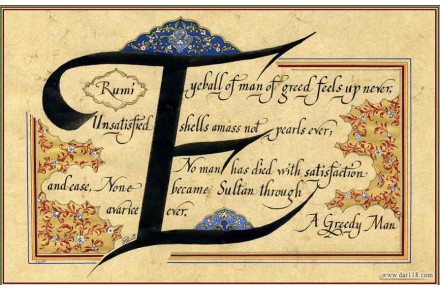 Rumi
Eyeball of man of greed feels up never,
Unsatisfied shells amass not pearls ever;
No man has died with satisfaction
and ease. None became Sultan through
avarice ever.
A Greedy Man
www.dar118.com